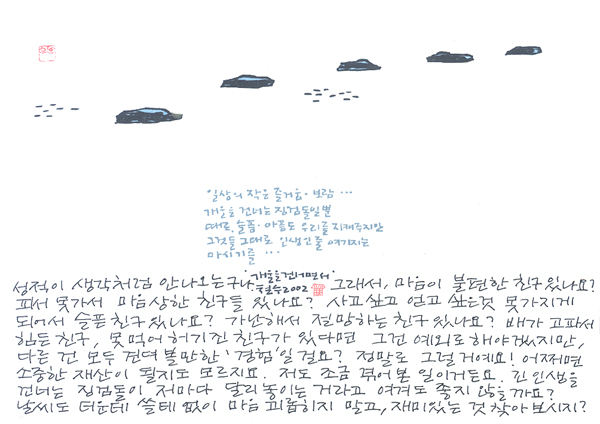 일상의 작은 즐거움·보람 ...
개울을 건너는 징검돌일 뿐
때로, 슬픔·아픔도 우리를 지켜주지만
그것들 그대로 인생인줄 여기지는
마시기를 ...
'개울을 건너면서'
철수2002
성적이 생각처럼 안나오는구나. 그래서, 마음이 불편한 친구 있나요?
파서 못가서 마음 상한 친구들 있나요? 사고 싶고 얻고 싶은 것 못가지게
되어서 슬픈 친구 있나요? 가난해서 절망하는 친구 있나요? 배가 고파서
힘든 친구, 못 먹어 허기진 친구가 있다면 그건 예외로 해야겠지만,
다른 건 모두 견뎌 볼만한 '경험'일 걸요? 정말로 그럴거예요! 어쩌면
소중한 재산이 될지도 모르지요. 저도 조금 겪어본 일이거든요. 긴 인생을
건너는 징검돌이 저마다 달리 놓이는 거라고 여겨도 좋지 않을까요?
날씨도 더운데 쓸데 없이 마음 괴롭히지 말고, 재미있는 것 찾아 보시지?